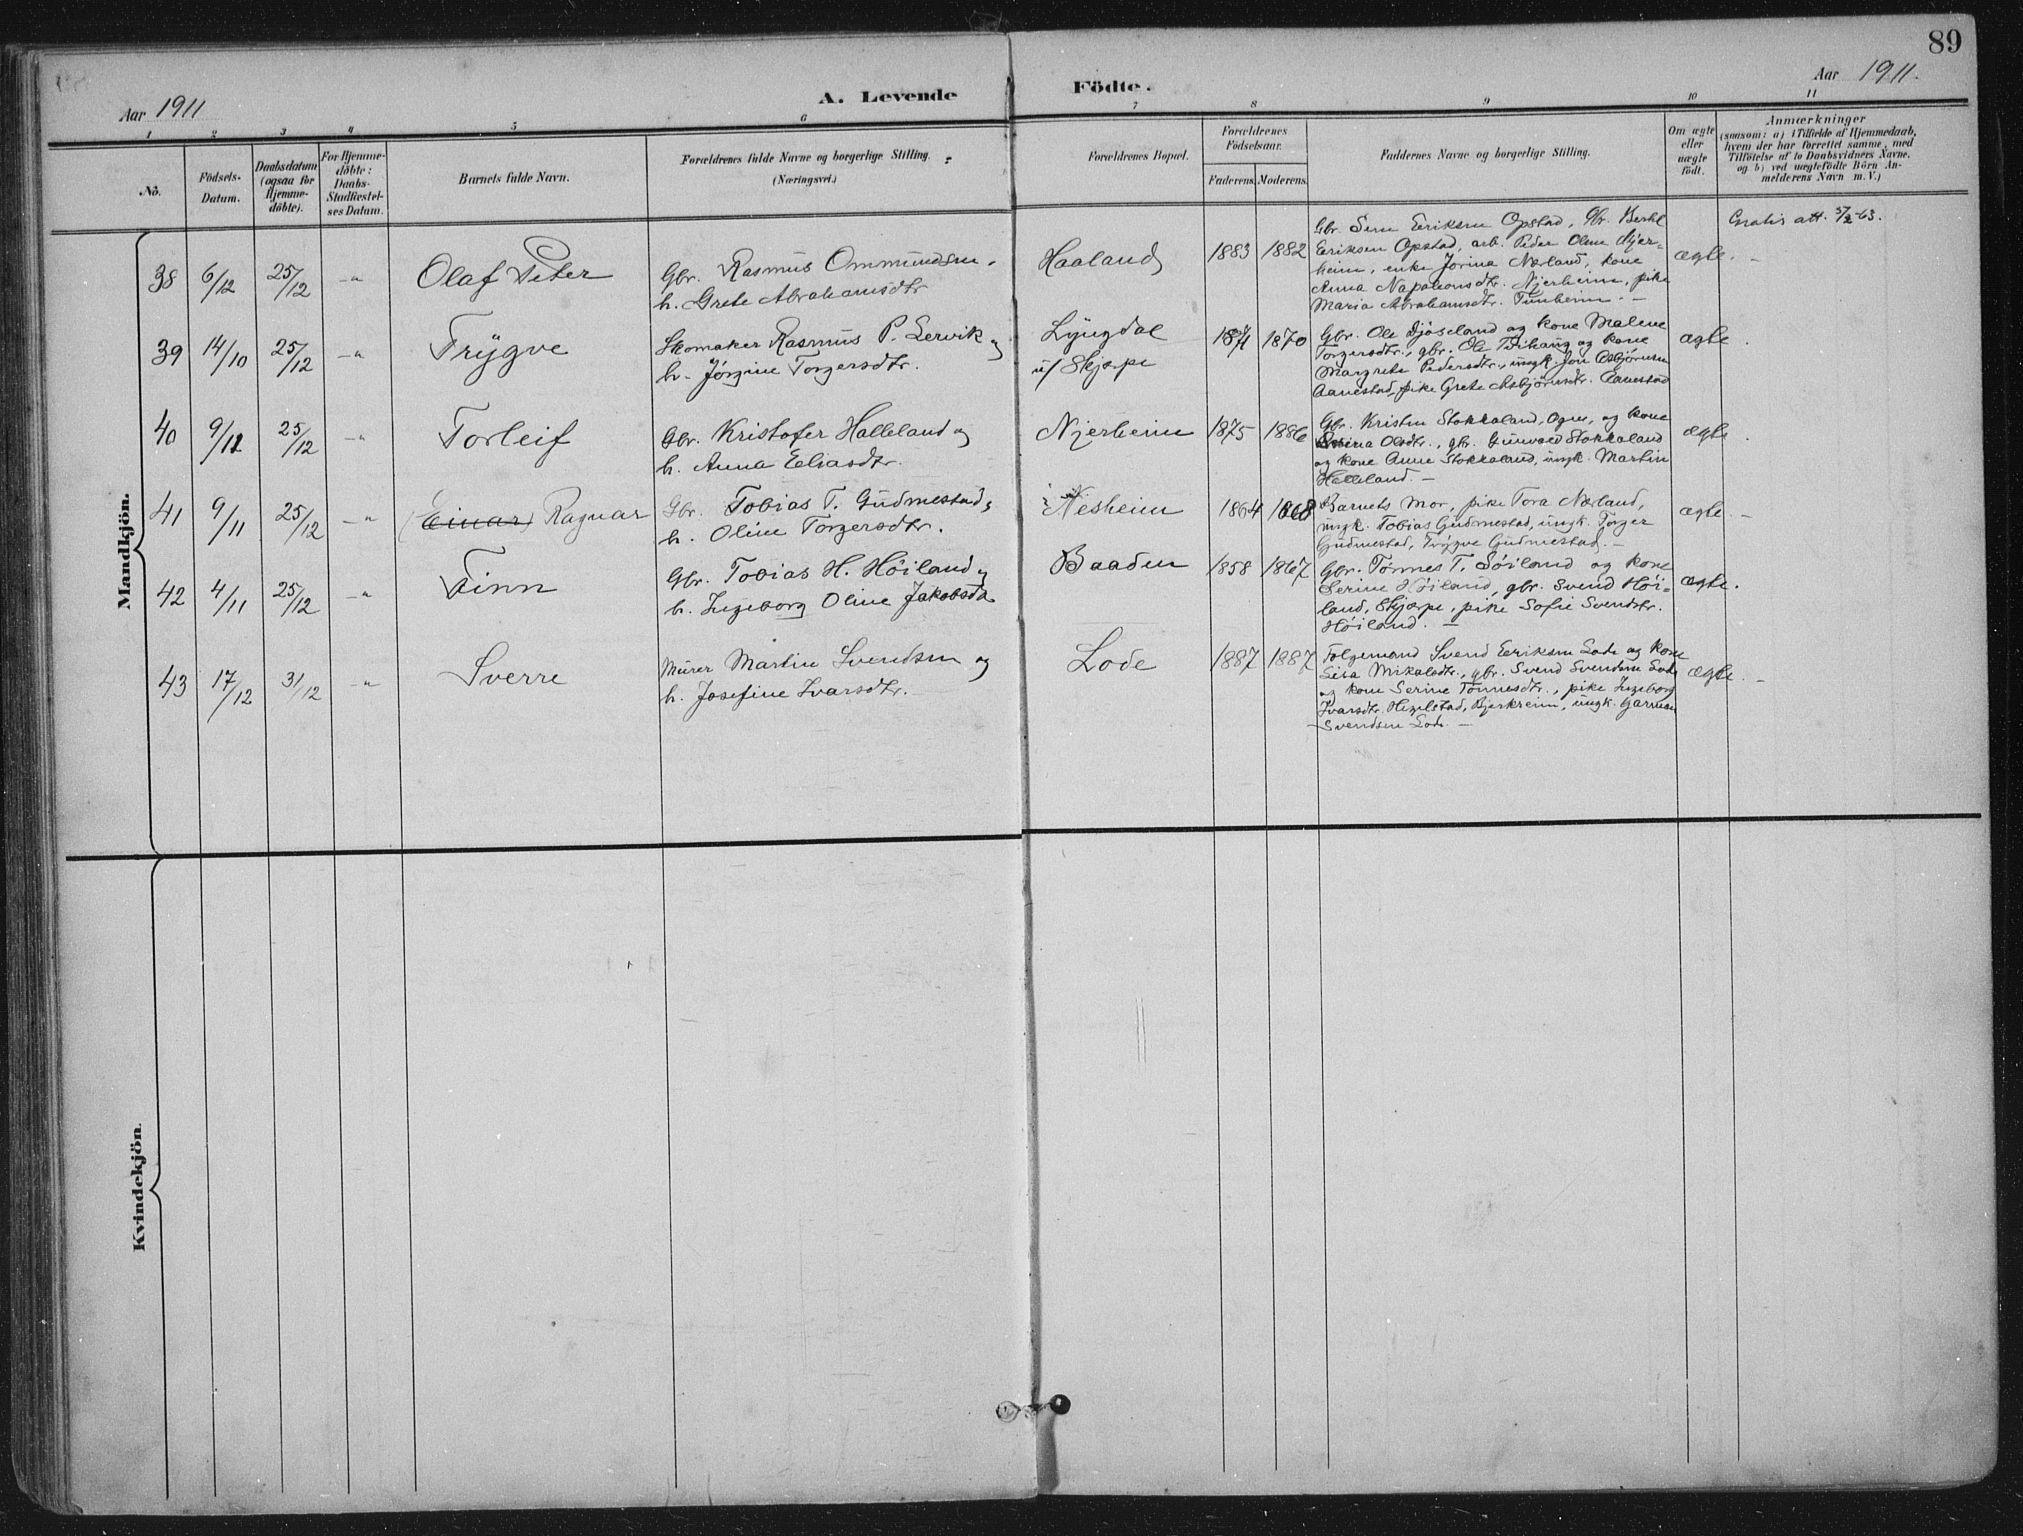 89
Aar 1911
A. Levende
Födte.
Aar 1911.
1 2 3 4 5 6 7 8 9 10 11
Nö.
Födsels-
Datum.
Daabsdatum
(ogsaa for
Hjemme-
döbte).
For Hjemme-
döbte:
Daabs-
Stadfestel-
ses Datum.
Barnets fulde Navn.
Forældrenes fulde Navne og borgerlige Stilling.
(Næringsvei.)
Forældrenes Bopæl.
Forældrenes
Födselsaar.
Faderens. Moderens.
Faddernes Navne og borgerlige Stilling.
Om ægte
eller
uægte
födt.
Anmærkninger
(saasom: a) i Tilfælde af Hjemmedaab,
hvem der har forrettet samme, med
Tilföielse af to Daabsvidners Navne.
og b) ved uægtefödte Börn An-
melderens Navn m. V.)
Mandkjön.
38 6/12 25/12 -"- Olaf Peter
Gbr. Rasmus Ommundsen.
h. Grete Abrahamsdtr
Haaland 1883 1882
Gbr. Sem Eriksen Opstad, Gbr. Bertel
Eriksen Opstad, arb. Peder Olsen Njer-
heim, enke Jorina Nærland, kone
Anna Napoleonsdtr. Njerheim, pike
Maria Abrahamsdtr. Tunheim. -
ægte. -
Gratis att. 5/2-63.
39 14/10 25/12 -"- Trygve
Skomaker Rasmus P. Lervik og
h. Jørgine Torgersdtr.
Lyngdal
u/ Skjærpe
1871 1870
Gbr. Ole Djøseland og kone Malene
Torgersdtr., gbr. Ole Tuihaug og kone
Margrete Pedersdtr., ungk. Jon Asbjørnsen
Aanestad, pike Grete Asbjørnsdtr. Aanestad
ægte.
40 9/12 25/12 -"- Torleif
Gbr. Kristofer Halleland og
h. Anna Eliasdtr.
Njerheim 1875 1886
Gbr. Kristen Stokkaland, Ogne, og kone
Olsdtr., gbr. Gunvald Stokkaland
og kone Anne Stokkaland, ungk. Martin
Helleland. -
ægte.
41 9/11 25/12 -"- (Einar) Ragnar
Gbr. Tobias T. Gudmestad &
h. Oline Torgersdtr.
Nesheim 1864 1868
Barnets Mor, pike Tora Nærland,
ungk. Tobias Gudmestad, ungk. Torger
Gudmestad, Trygve Gudmestad. -
ægte. -
42 4/11 25/12 -"- Finn
Gbr. Tobias H. Höiland og
h. Ingeborg Oline Jakobsdtr
Baaden 1858 1867
Gbr. Tönnes T. Söiland og kone
Serine Höiland, gbr. Svend Höi-
land, Skjærpe, pike Sofie Svendsdtr.
Höiland. -
ægte.
43 17/12 31/12 -"- Sverre
Murer Martin Svendsen og
h. Josefine Ivarsdtr.
Lode 1887 1887
Folgemand Svend Eriksen Lode og kone
Sisa Mikalsdtr., gbr. Svend Svendsen Lode
og kone Serine Tönnesdtr., pike Ingeborg
Ivarsdtr. Hegelstad, Bjerkreim, ungk. Garman
Svendsen Lode. -
ægte. -
Kvindekjön.